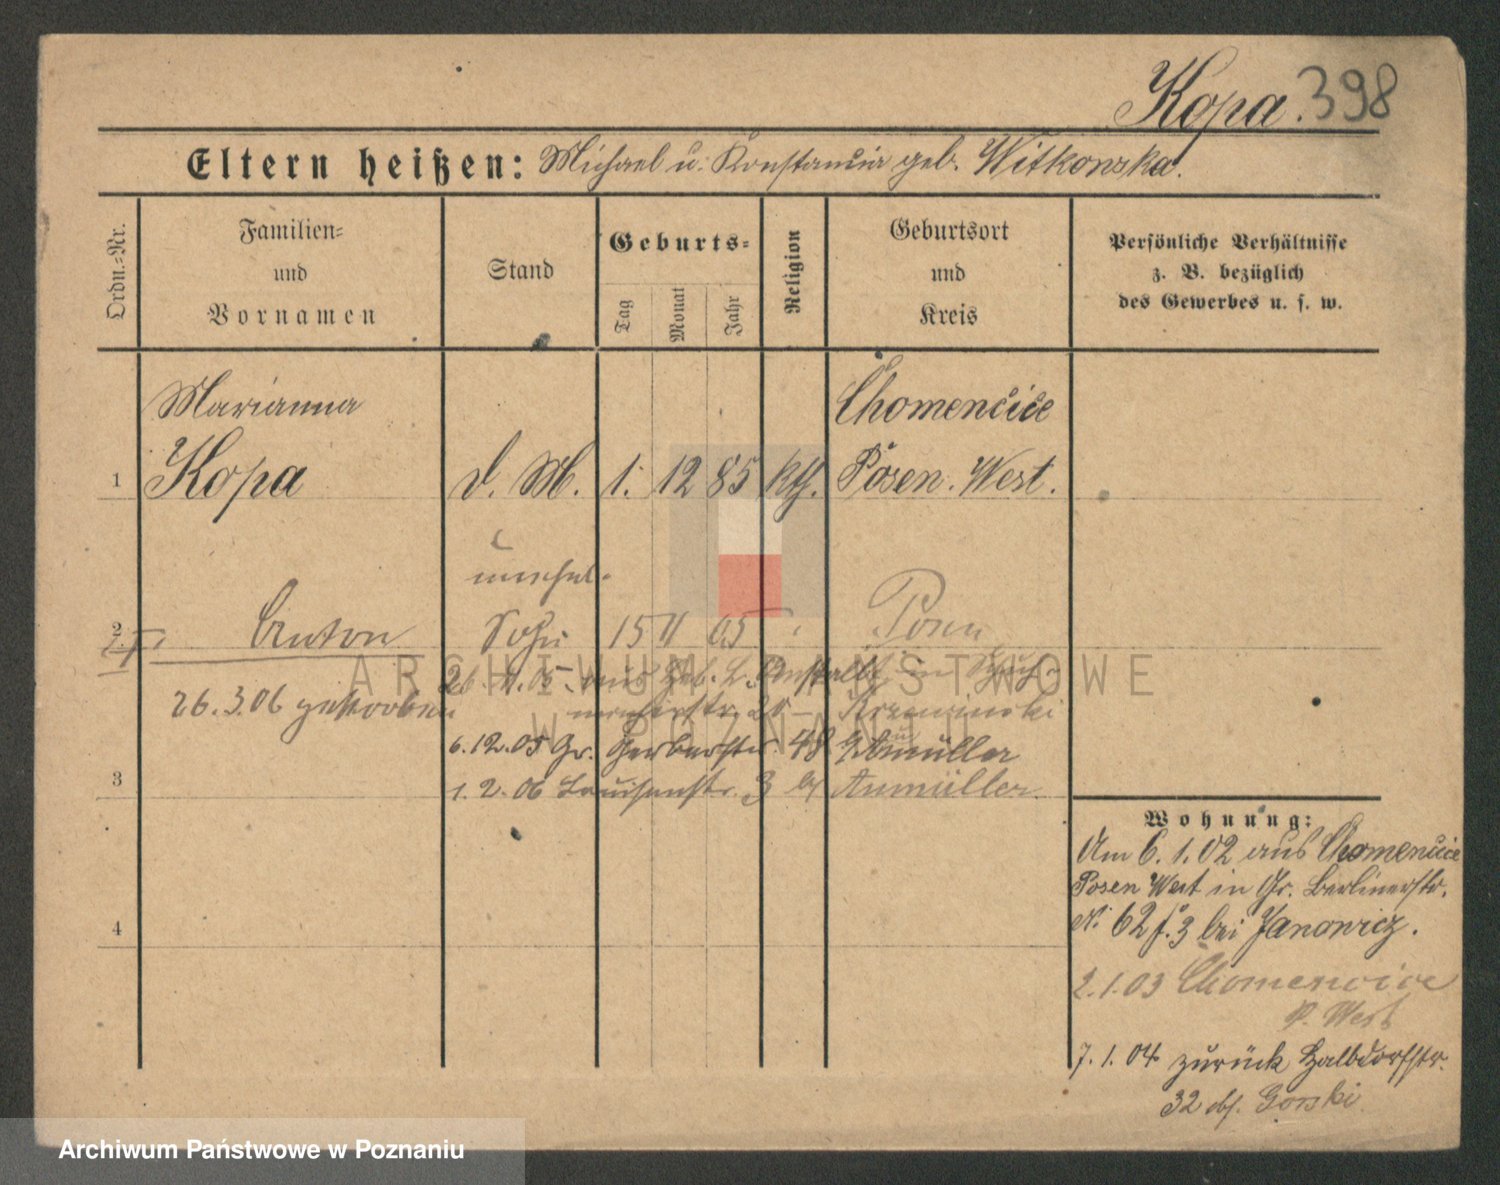 Kopa. 398
Eltern heißen: Michael u. Konstancia geb. Witkowska.
Ordn.-Nr.
Familien-
und
Vornamen
Stand
Geburts-
Tag
Monat
Jahr
Religion
Geburtsort
und
Kreis
Persönliche Verhältnisse
z. B. bezüglich
des Gewerbes u. s. w.
Marianna
Chomencice
1 Kopa d. M. 1. 12 85 kth. Posen. West.
unehel.
2 Anton Sohn 15 11 05 Posen
26.3.06 gestorben
6.12.05 Gr. Gerberstr. 48 Aumüller
3
1.2.06 Louisenstr. 3 bei Aumüller.
4
Wohnung:
Am 6.1.02 aus Chomencice
Posen West in Gr. Berlinerstr.
N. 62 f. 3 bei Janowicz.
2.1.03 Chomencice
P. West
7.1.04 zurück Halbdorfstr.
32 bei Gorski
ARCHIWUM PAŃSTWOWE
W POZNANIU
Archiwum Państwowe w Poznaniu